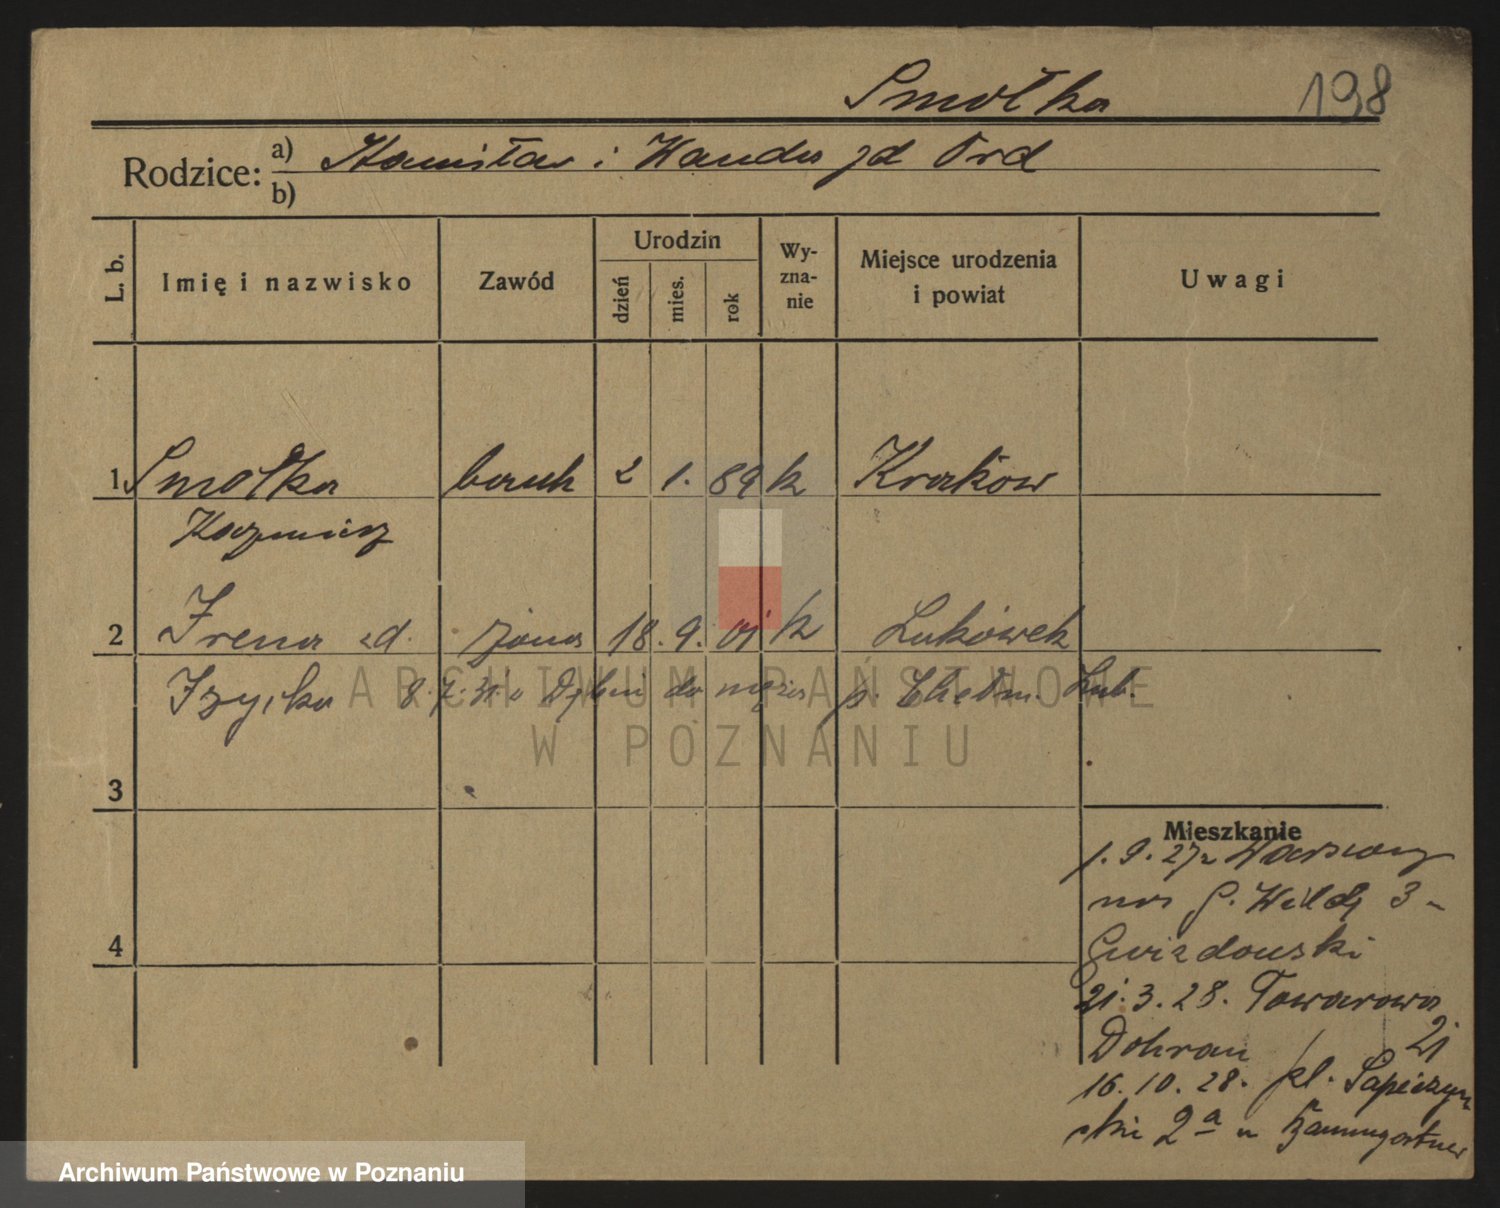 Smołka 198
Rodzice: a) Stanisław i Wanda zd Ord
b)
L. b. Imię i nazwisko Zawód Urodzin dzień mies. rok Wyznanie Miejsce urodzenia i powiat Uwagi
1 Smołka 2 1. 89 k Kraków
Kazimierz
2 Irena zd. żona 18. 9. 01 k Lukówek
8.7.31 z do męża p. Chełm. Lub.
3
Mieszkanie
1.9.27 z Warszawy
na G. Wilda 3 -
4
Gwizdowski
21.3.28. Towarowa
21
16.10.28. pl. Sapieżyń
ski 2a u Baumgartner
ARCHIWUM PAŃSTWOWE
W POZNANIU
Archiwum Państwowe w Poznaniu